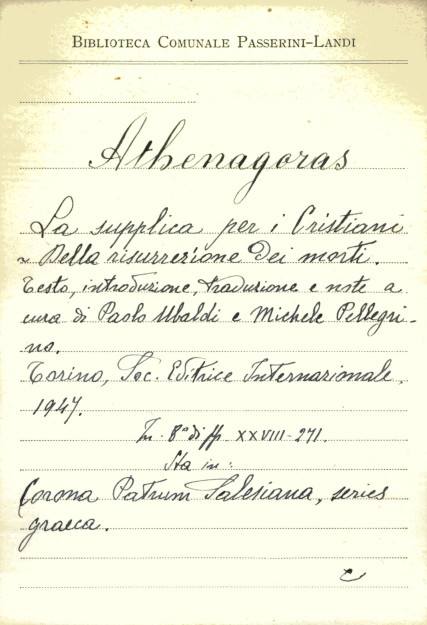 BIBLIOTECA COMUNALE PASSERINI-LANDI
Athenagoras
La supplica per i Cristiani
~ Della risurrezione dei morti.
Testo, introduzione, traduzione e note a
cura di Paolo Ubaldi e Michele Pellegri-
no.
Torino, Soc. Editrice Internazionale,
1947.
In-8° di pp. XXVIII-271.
Sta in:
Corona Patrum Salesiana, series
graeca.